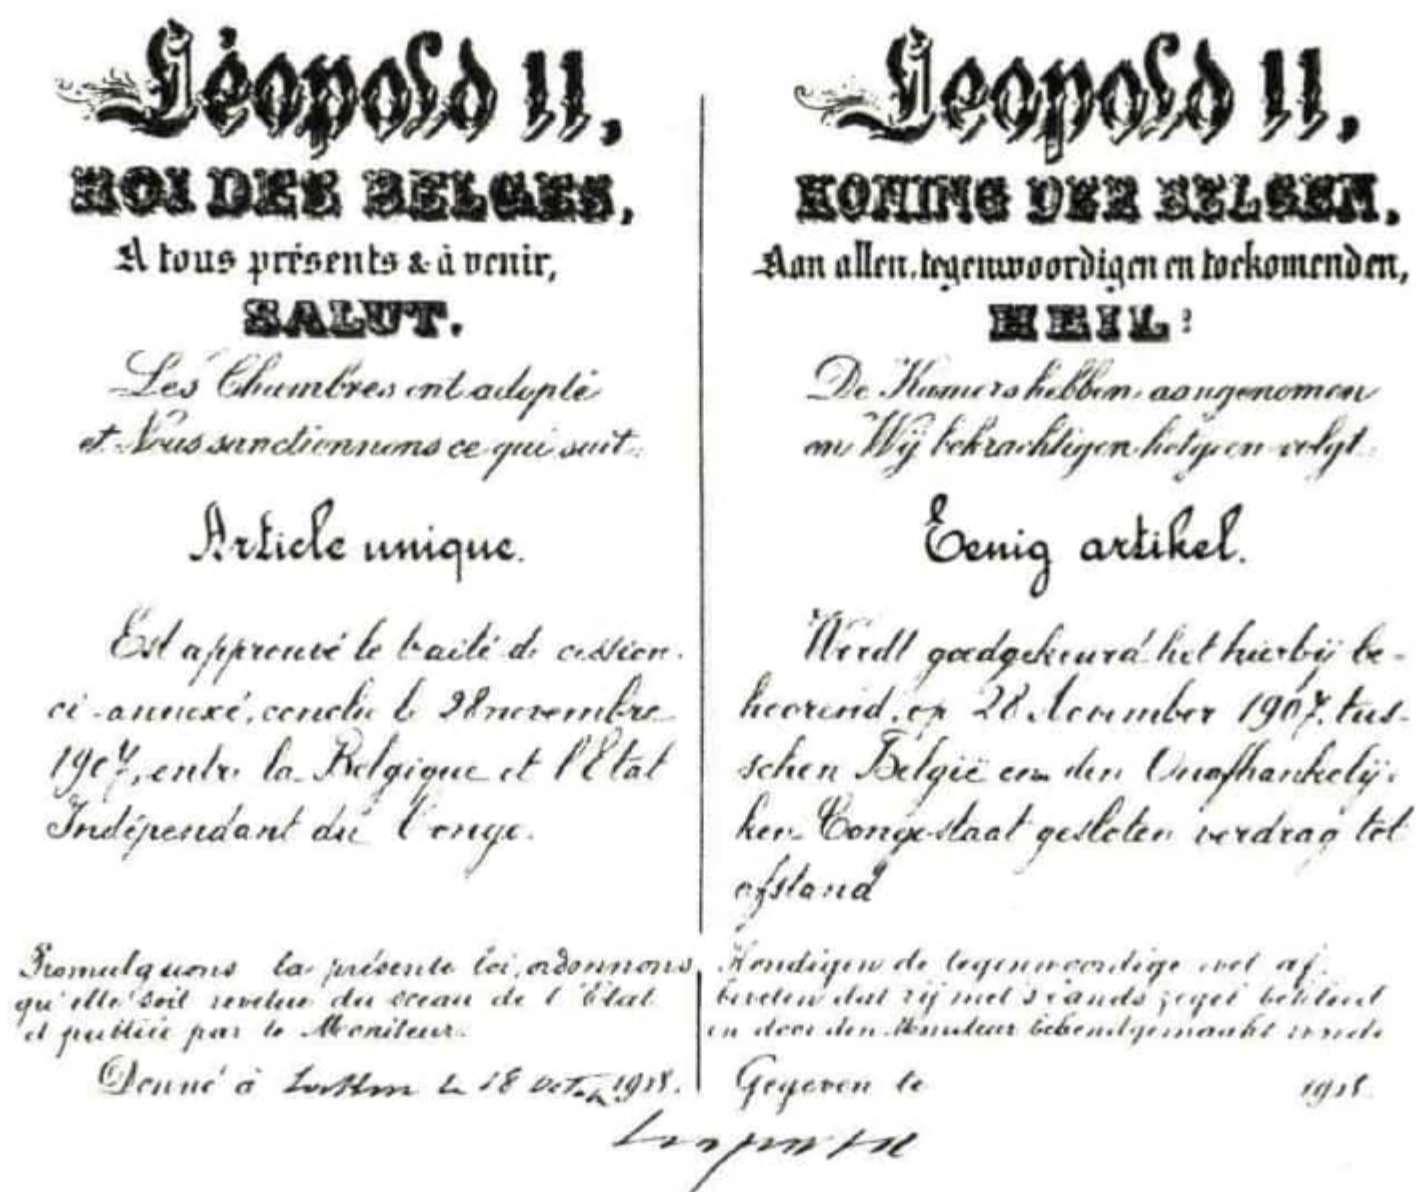 Léopold II,
ROI DES BELGES,
A tous présents & à venir,
SALUT.
Les Chambres ont adopté
et Nous sanctionnons ce qui suit:
Article unique.
Est approuvé le traité de cession
ci-annexé, conclu le 28 novembre
1907, entre la Belgique et l'Etat
Indépendant du Congo.
Promulguons la présente loi, ordonnons
qu'elle soit revêtue du sceau de l'Etat
et publiée par le Moniteur.
Donné à le 18 1908.
Leopold II,
KONING DER BELGEN,
Aan allen, tegenwoordigen en toekomenden,
HEIL:
De Kamers hebben aangenomen
en Wij bekrachtigen hetgeen volgt:
Eenig artikel.
Wordt goedgekeurd het hierbij be-
hoorend, op 28 November 1907, tus-
schen België en den Onafhankelij-
ken Congostaat gesloten verdrag tot
afstand
Kondigen de tegenwoordige wet af,
bevelen dat zij met 's Lands zegel bekleed
en door den Moniteur bekendgemaakt worde
Gegeven te 1908.